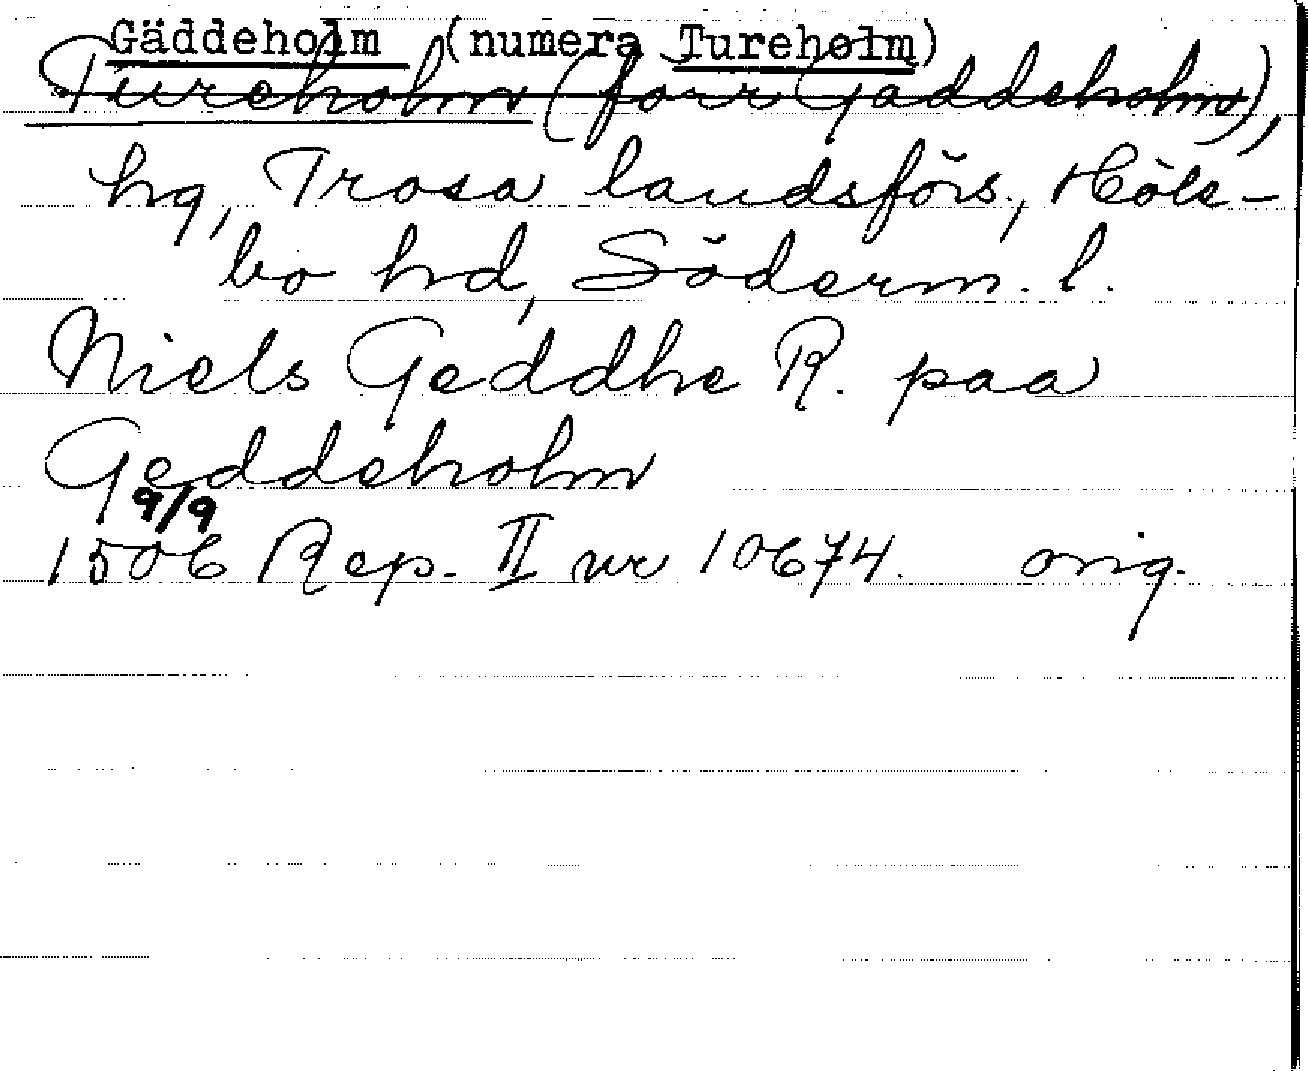 Gäddeholm (numera Tureholm)
Tureholm (förr Gäddeholm),
hg, Trosa landsförs., Höle-
bo hd, Söderm. l.
Niels Geddhe R. paa
Geddeholm
9/9
1506 Rep. II nr 10674. orig.